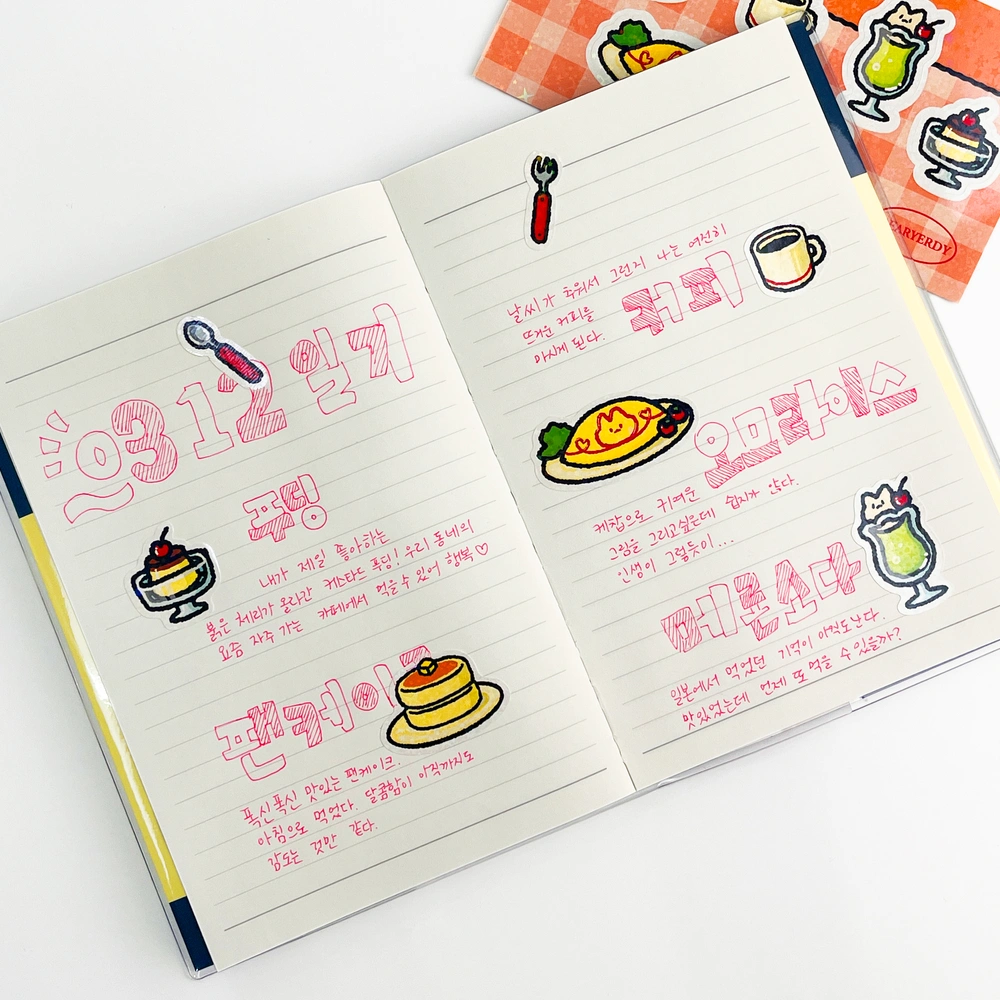 0312 일기
푸딩
내가 제일 좋아하는
붉은 체리가 올라간 커스타드 푸딩! 우리 동네의
요즘 자주 가는 카페에서 먹을 수 있어 행복♡
팬케이크
폭신폭신 맛있는 팬케이크.
아침으로 먹었다. 달콤함이 아직까지도
감도는 것만 같다.
날씨가 추워서 그런지 나는 여전히
뜨거운 커피를
마시게 된다.
커피
오므라이스
케찹으로 귀여운
그림을 그리고싶은데 쉽지가 않다.
인생이 그렇듯이...
메론소다
일본에서 먹었던 기억이 아직도 난다.
맛있었는데 언제 또 먹을 수 있을까?
EARYERDY